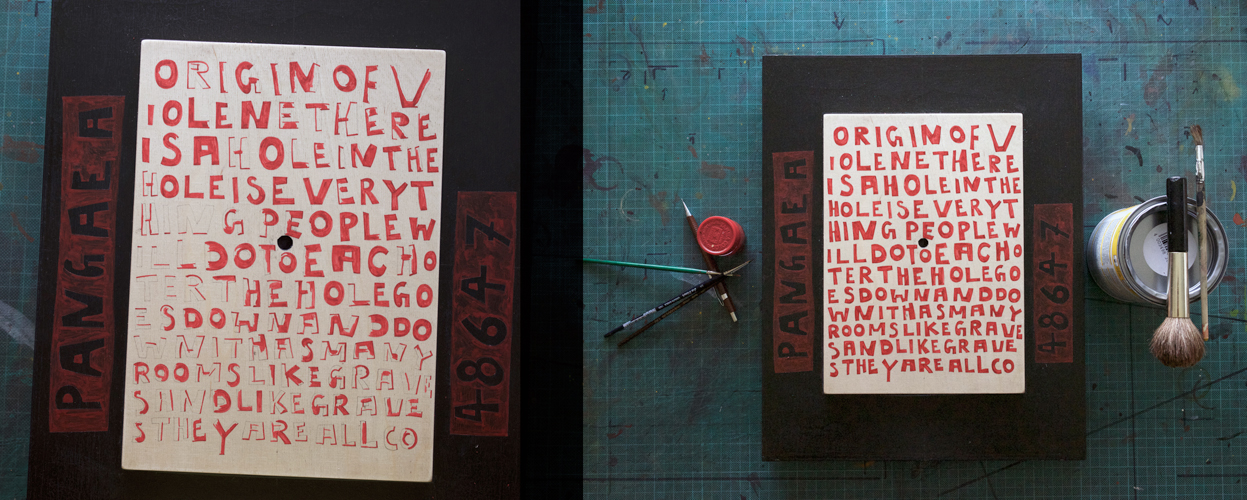 PANGAEA
ORIGIN OF V
IOLENETHERE
ISAHOLEINTHE
HOLEISEVERYT
HING PEOPLEW
ILL DOTOEACHO
TERTHEHOLEGO
ESDOWNANDDO
WNWITHASMANY
ROOMSLIKEGRAVE
SANDLIKEGRAVE
STHEYAREALLCO
48647
PANGAEA
ORIGINOFV
IOLENETHERE
ISAHOLEINTHE
HOLEISEVERYT
HING PEOPLEW
ILLDOTOEACHO
TERTHEHOLEGO
ESDOWNANDDO
WNWITHASMANY
ROOMSLIKEGRAVE
SANDLIKEGRAVE
STHEYAREALLCO
48647